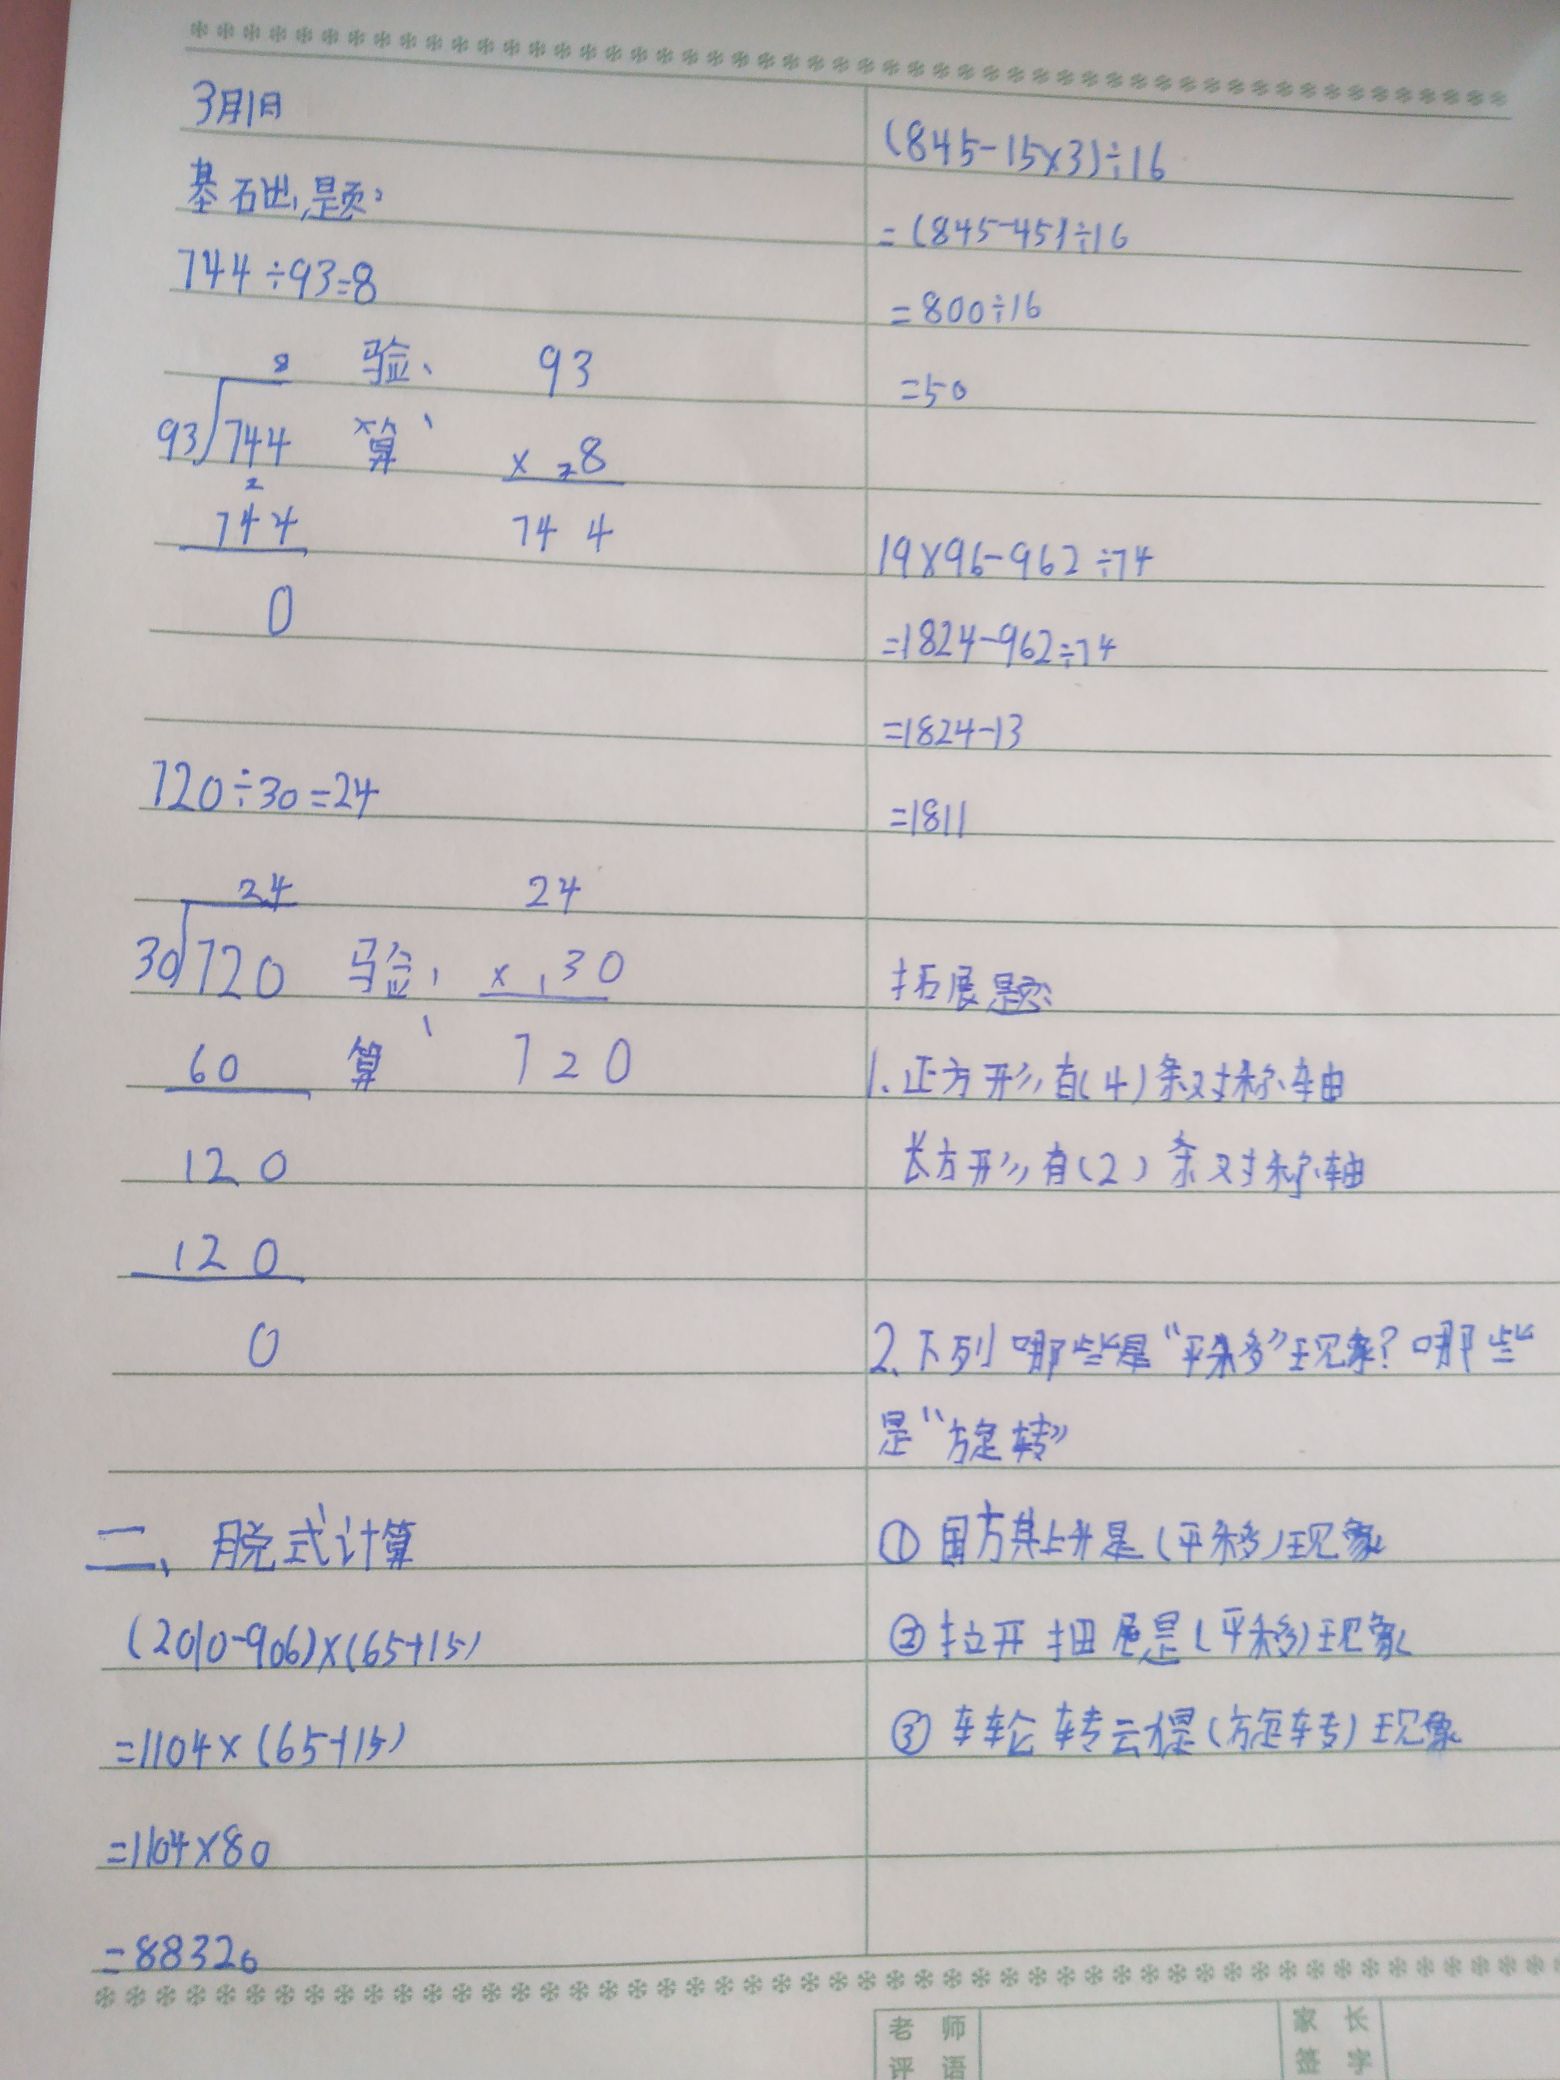 3月1日
基础题:
744÷93=8
8
93 744
2
744
0
验算:
93
× 2 8
744
720÷30=24
24
30 720
60
120
120
0
验算:
24
× 1 30
720
二、脱式计算
(2010-906)×(65+15)
=1104×(65+15)
=1104×80
=88320
(845-15×3)÷16
=(845-45)÷16
=800÷16
=50
19×96-962÷74
=1824-962÷74
=1824-13
=1811
拓展题:
1.正方形有(4)条对称轴
长方形有(2)条对称轴
2.下列哪些是“平移”现象?哪些
是“旋转”
①国方其上升是(平移)现象
②拉开抽屉是(平移)现象
③车轮转动是(旋转)现象
老师
评语
家长
签字